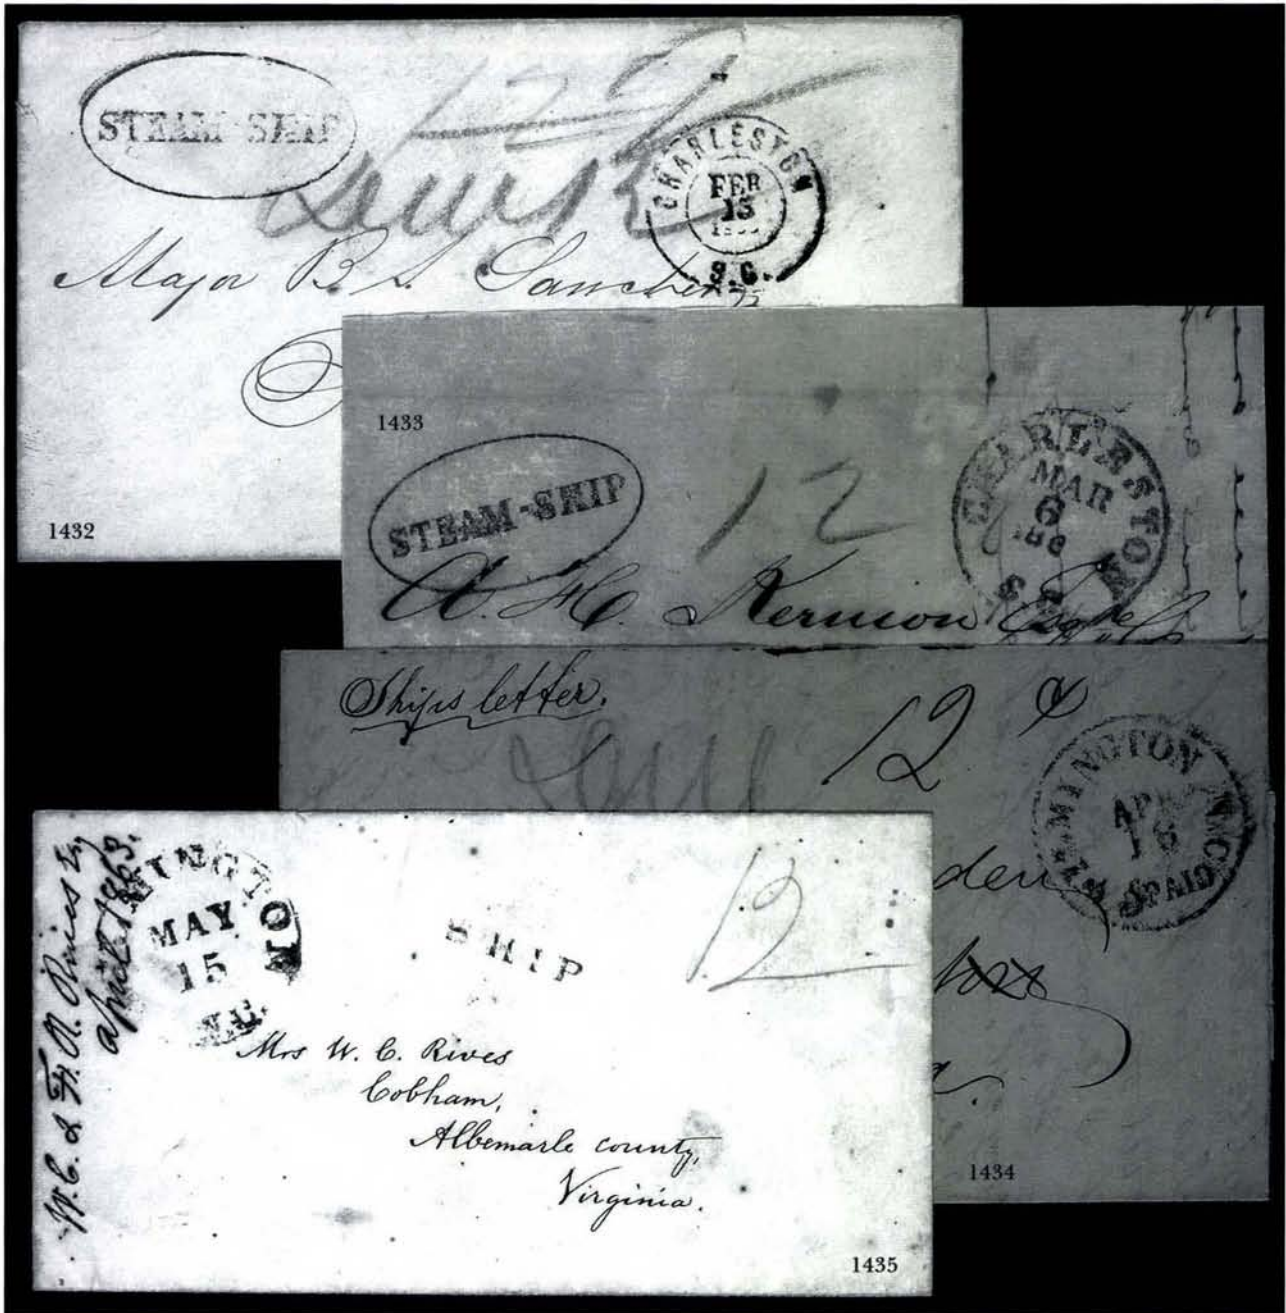 STEAM-SHIP
12
CHARLESTON
FEB
15
S.C.
Major B. S.
1432
1433
STEAM-SHIP
12
CHARLESTON
MAR
6
186
A. H. Kernion Esqre
Ship's letter.
12
WILMINGTON N.C.
PAID
den
1434
W. C. & F. R. Rives Esq
april 1863.
MINGTON
MAY
15
N.C.
SHIP
12
Mrs W. C. Rives
Cobham,
Albemarle county,
Virginia.
1435